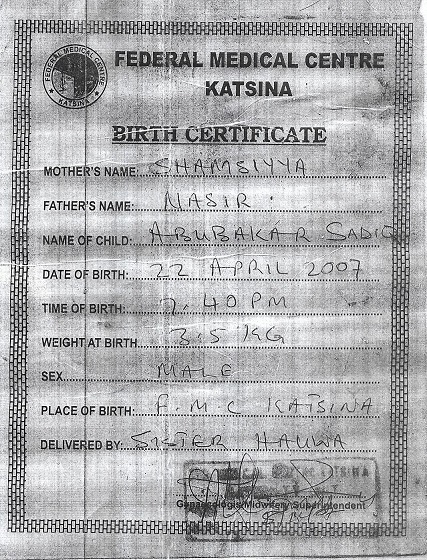 FEDERAL MEDICAL CENTRE
KATSINA
FEDERAL MEDICAL CENTRE
KATSINA
BIRTH CERTIFICATE
MOTHER'S NAME: SHAMSIYYA
FATHER'S NAME: NASIR
NAME OF CHILD: ABUBAKAR SADIQ
DATE OF BIRTH: 22 APRIL 2007
TIME OF BIRTH: 7.40 PM
WEIGHT AT BIRTH 3.5 KG
SEX MALE
PLACE OF BIRTH: F.M.C KATSINA
DELIVERED BY: SISTER HAUWA
KATSINA
Superintendent